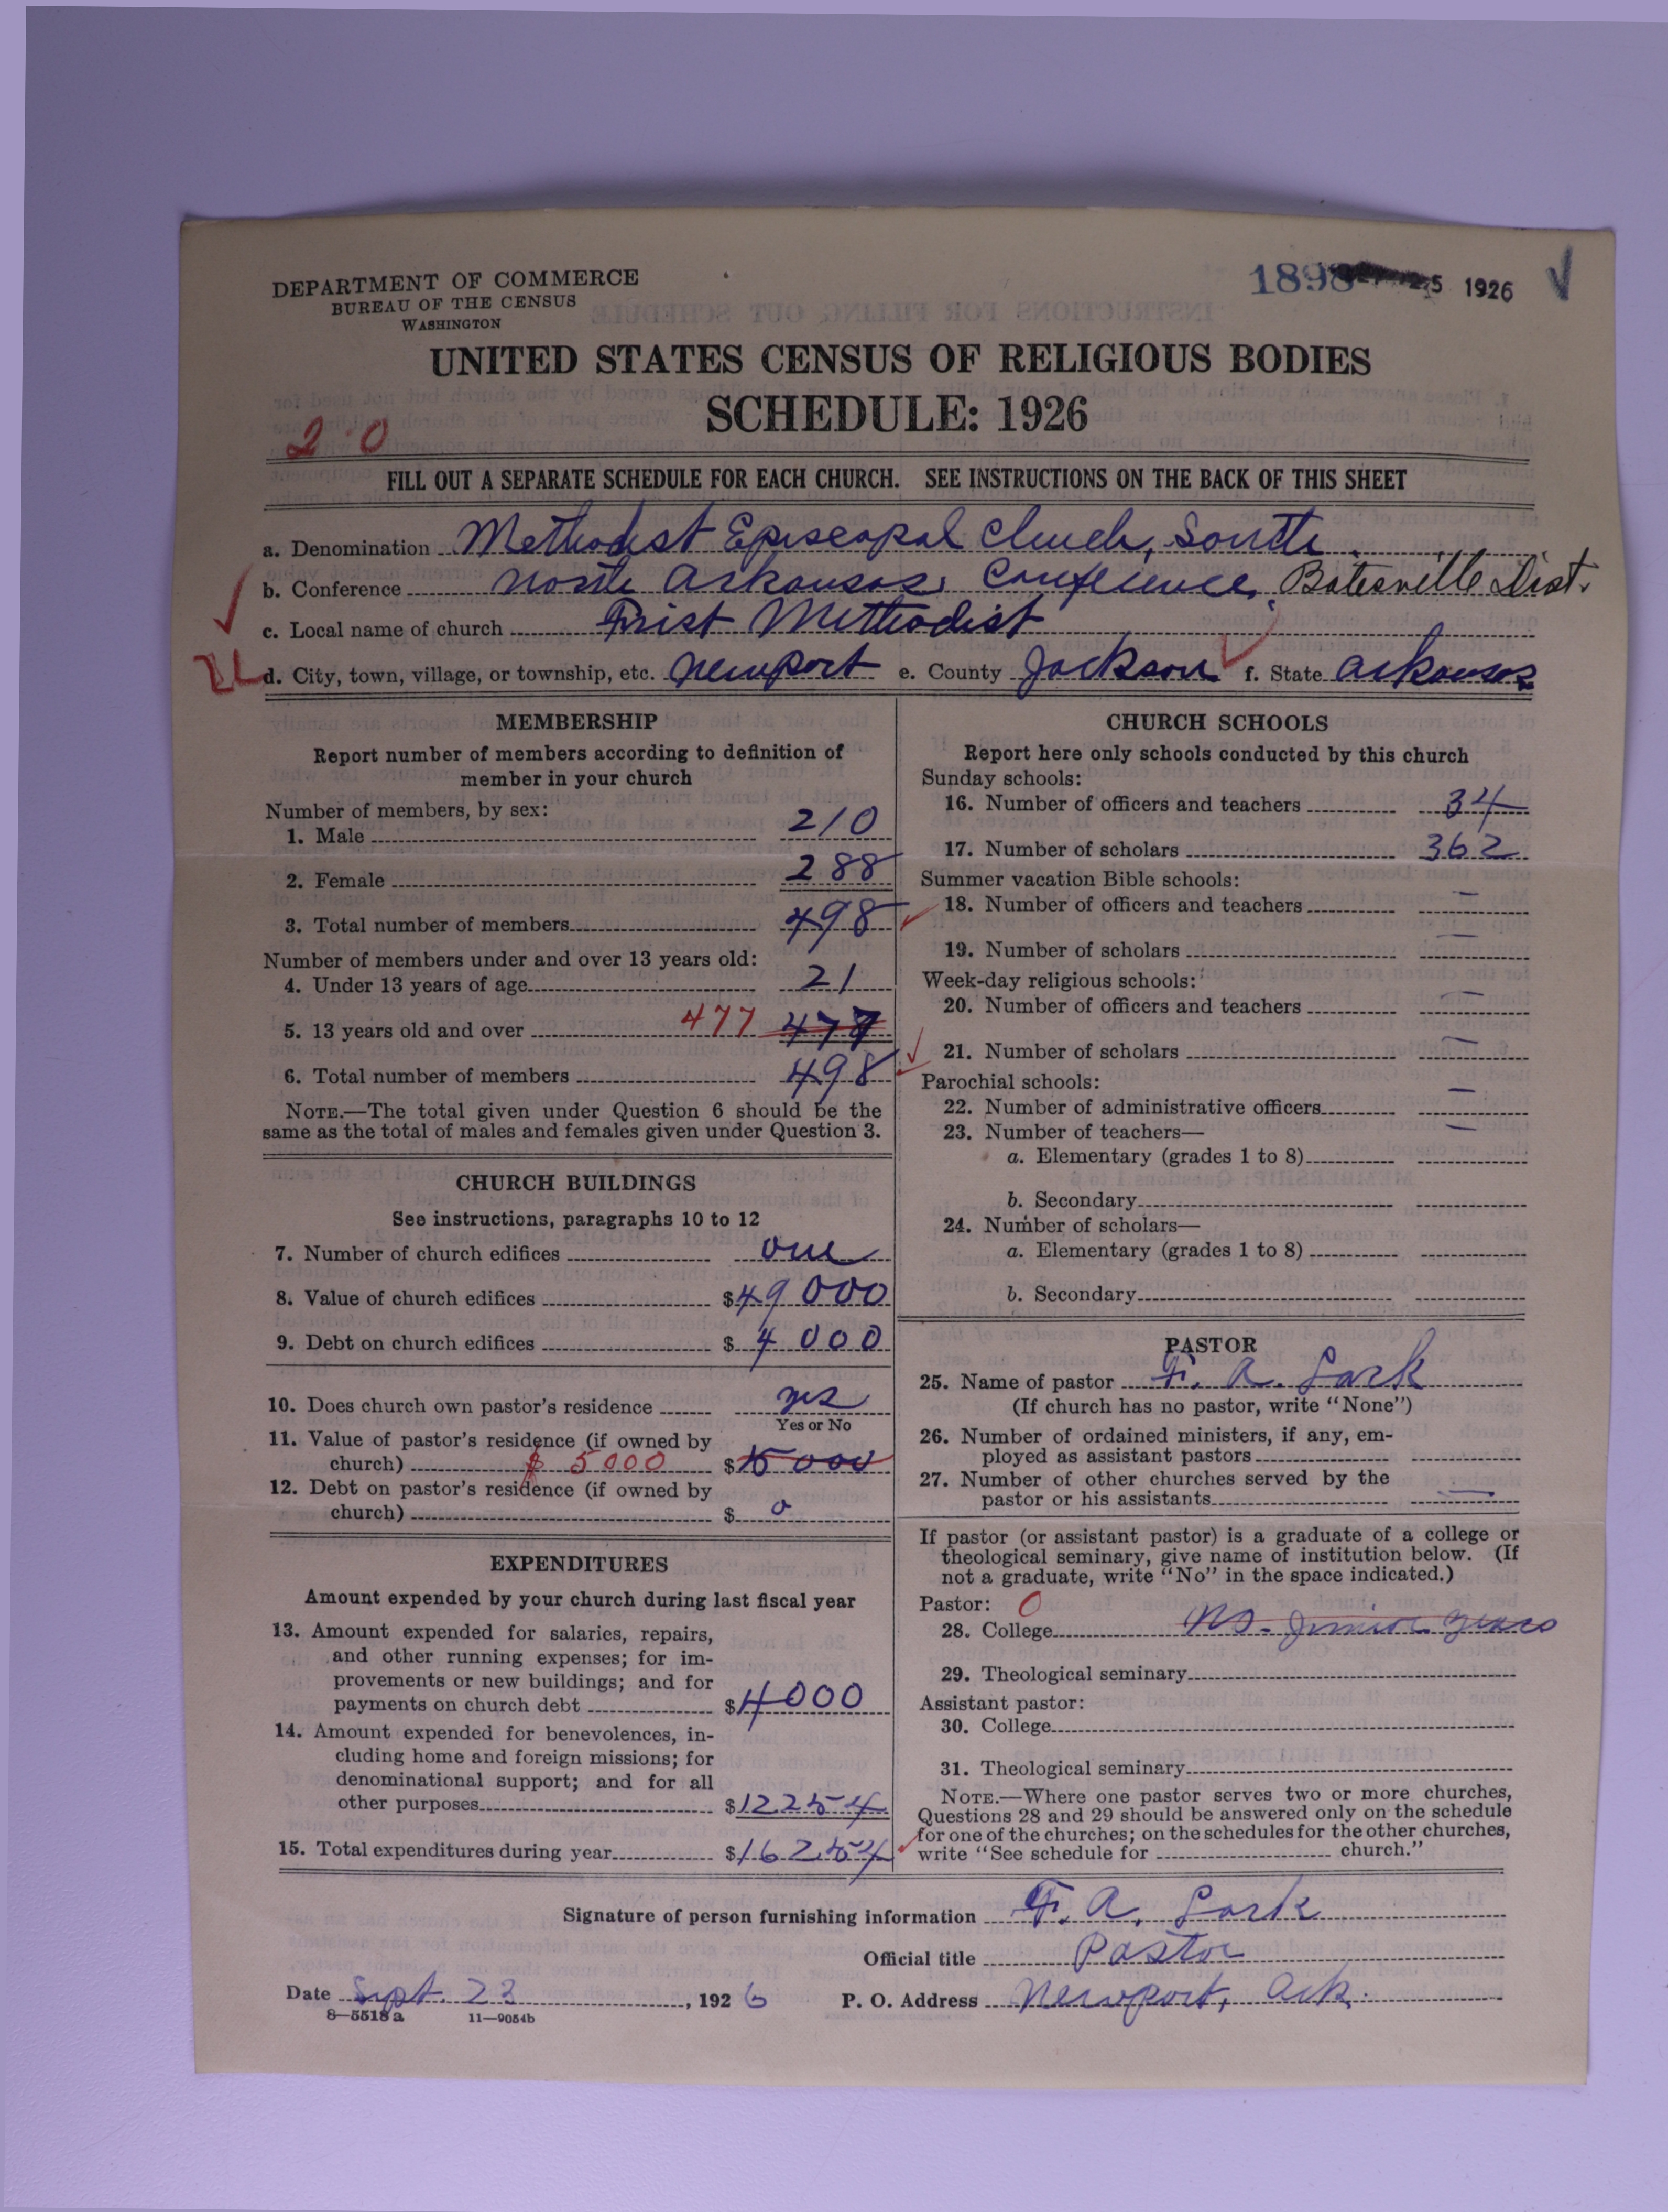 DEPARTMENT OF COMMERCE
BUREAU OF THE CENSUS
WASHINGTON
1898 25 1926
UNITED STATES CENSUS OF RELIGIOUS BODIES
SCHEDULE: 1926
2 0
FILL OUT A SEPARATE SCHEDULE FOR EACH CHURCH. SEE INSTRUCTIONS ON THE BACK OF THIS SHEET
a. Denomination Methodist Episcopal Church, South
b. Conference North Arkansas Conference, Batesville Dist.
c. Local name of church First Methodist
d. City, town, village, or township, etc. Newport e. County Jackson f. State Arkansas
MEMBERSHIP
Report number of members according to definition of
member in your church
Number of members, by sex:
1. Male 210
2. Female 288
3. Total number of members 498
Number of members under and over 13 years old:
4. Under 13 years of age 21
5. 13 years old and over 477 477
6. Total number of members 498
NOTE.—The total given under Question 6 should be the
same as the total of males and females given under Question 3.
CHURCH BUILDINGS
See instructions, paragraphs 10 to 12
7. Number of church edifices one
8. Value of church edifices $49000
9. Debt on church edifices $4000
10. Does church own pastor's residence yes
Yes or No
11. Value of pastor's residence (if owned by
church) $5000 $5000
12. Debt on pastor's residence (if owned by
church) $0
EXPENDITURES
Amount expended by your church during last fiscal year
13. Amount expended for salaries, repairs,
and other running expenses; for im-
provements or new buildings; and for
payments on church debt $4000
14. Amount expended for benevolences, in-
cluding home and foreign missions; for
denominational support; and for all
other purposes $12254
15. Total expenditures during year $16254
CHURCH SCHOOLS
Report here only schools conducted by this church
Sunday schools:
16. Number of officers and teachers 34
17. Number of scholars 362
Summer vacation Bible schools:
18. Number of officers and teachers —
19. Number of scholars —
Week-day religious schools:
20. Number of officers and teachers —
21. Number of scholars —
Parochial schools:
22. Number of administrative officers —
23. Number of teachers— —
a. Elementary (grades 1 to 8)
b. Secondary
24. Number of scholars—
a. Elementary (grades 1 to 8)
b. Secondary
PASTOR
25. Name of pastor F. A. Lark
(If church has no pastor, write "None")
26. Number of ordained ministers, if any, em-
ployed as assistant pastors
27. Number of other churches served by the
pastor or his assistants —
If pastor (or assistant pastor) is a graduate of a college or
theological seminary, give name of institution below. (If
not a graduate, write "No" in the space indicated.)
Pastor: 0
28. College No. Junior years
29. Theological seminary
Assistant pastor:
30. College
31. Theological seminary
NOTE.—Where one pastor serves two or more churches,
Questions 28 and 29 should be answered only on the schedule
for one of the churches; on the schedules for the other churches,
write "See schedule for church."
Signature of person furnishing information F. A. Lark
Official title Pastor
Date Sept. 23, 1926 P. O. Address Newport, Ark.
8—5518a 11—9054b